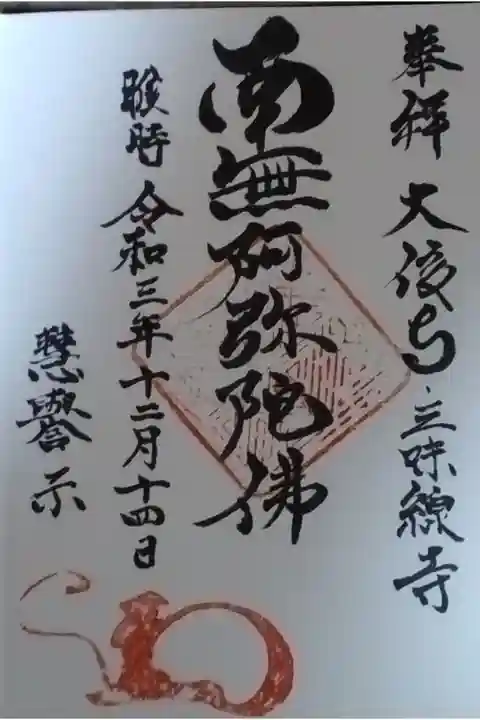 奉拝 大後ち・三味線寺
南無阿弥陀佛
睺時 令和三年十二月十四日
慧譽示